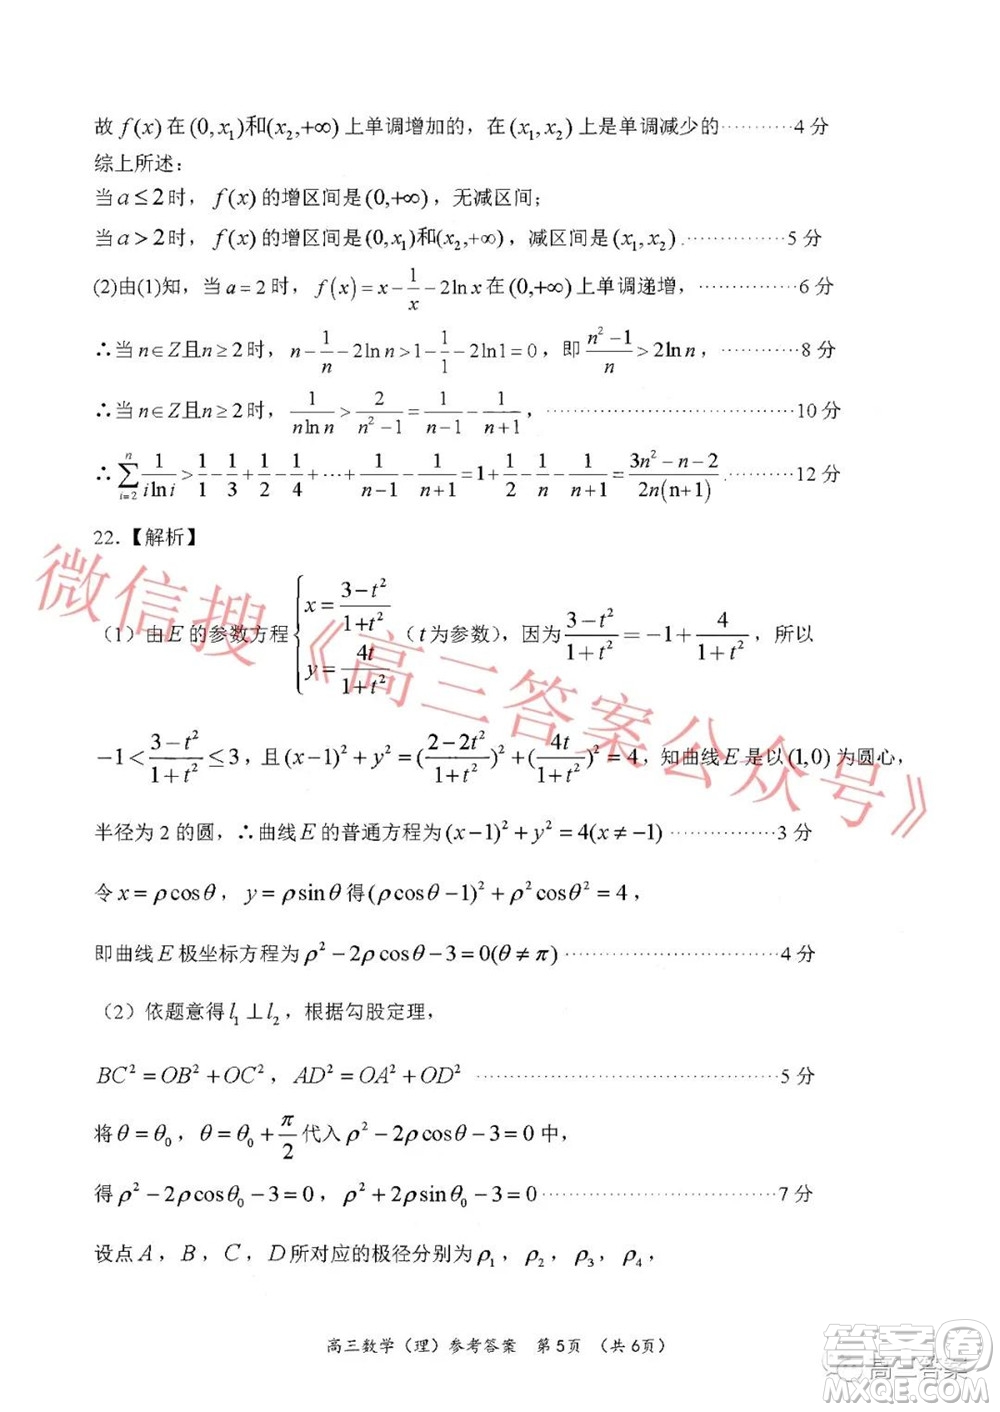 故 f(x) 在 (0, x₁)和(x₂,+∞) 上单调增加的，在 (x₁, x₂) 上是单调减少的············4 分
综上所述：
当 a ≤ 2 时，f(x) 的增区间是 (0,+∞)，无减区间；
当 a > 2 时，f(x) 的增区间是 (0, x₁)和(x₂,+∞)，减区间是 (x₁, x₂).············5 分
(2)由(1)知，当 a = 2 时，f(x) = x − 1/x − 2ln x 在 (0,+∞) 上单调递增，············6 分
∴当 n∈Z且n ≥ 2 时，n − 1/n − 2ln n > 1 − 1/1 − 2ln1 = 0，即 (n²−1)/n > 2ln n，············8 分
∴当 n∈Z且n ≥ 2 时，1/(n ln n) > 2/(n²−1) = 1/(n−1) − 1/(n+1)，············10 分
∴ ∑_{i=2}^{n} 1/(i ln i) > 1/1 − 1/3 + 1/2 − 1/4 + ··· + 1/(n−1) − 1/(n+1) = 1 + 1/2 − 1/n − 1/(n+1) = (3n²−n−2)/(2n(n+1)).············12 分
22.【解析】
（1）由 E 的参数方程 { x = (3−t²)/(1+t²) y = 4t/(1+t²) （t 为参数），因为 (3−t²)/(1+t²) = −1 + 4/(1+t²)，所以
−1 < (3−t²)/(1+t²) ≤ 3，且 (x−1)² + y² = ((2−2t²)/(1+t²))² + (4t/(1+t²))² = 4，知曲线 E 是以 (1,0) 为圆心，
半径为 2 的圆，∴曲线 E 的普通方程为 (x−1)² + y² = 4(x ≠ −1)············3 分
令 x = ρcosθ，y = ρsinθ 得 (ρcosθ−1)² + ρ²cosθ² = 4，
即曲线 E 极坐标方程为 ρ² − 2ρcosθ − 3 = 0(θ ≠ π)············4 分
（2）依题意得 l₁ ⊥ l₂，根据勾股定理，
BC² = OB² + OC²，AD² = OA² + OD² ············5 分
将 θ = θ₀，θ = θ₀ + π/2 代入 ρ² − 2ρcosθ − 3 = 0 中，
得 ρ² − 2ρcosθ₀ − 3 = 0，ρ² + 2ρsinθ₀ − 3 = 0············7 分
设点 A，B，C，D 所对应的极径分别为 ρ₁，ρ₂，ρ₃，ρ₄，
高三数学（理）参考答案 第 5页 （共 6页）
微信搜《高三答案公众号》
高三答案
答案圈
MXQE.COM